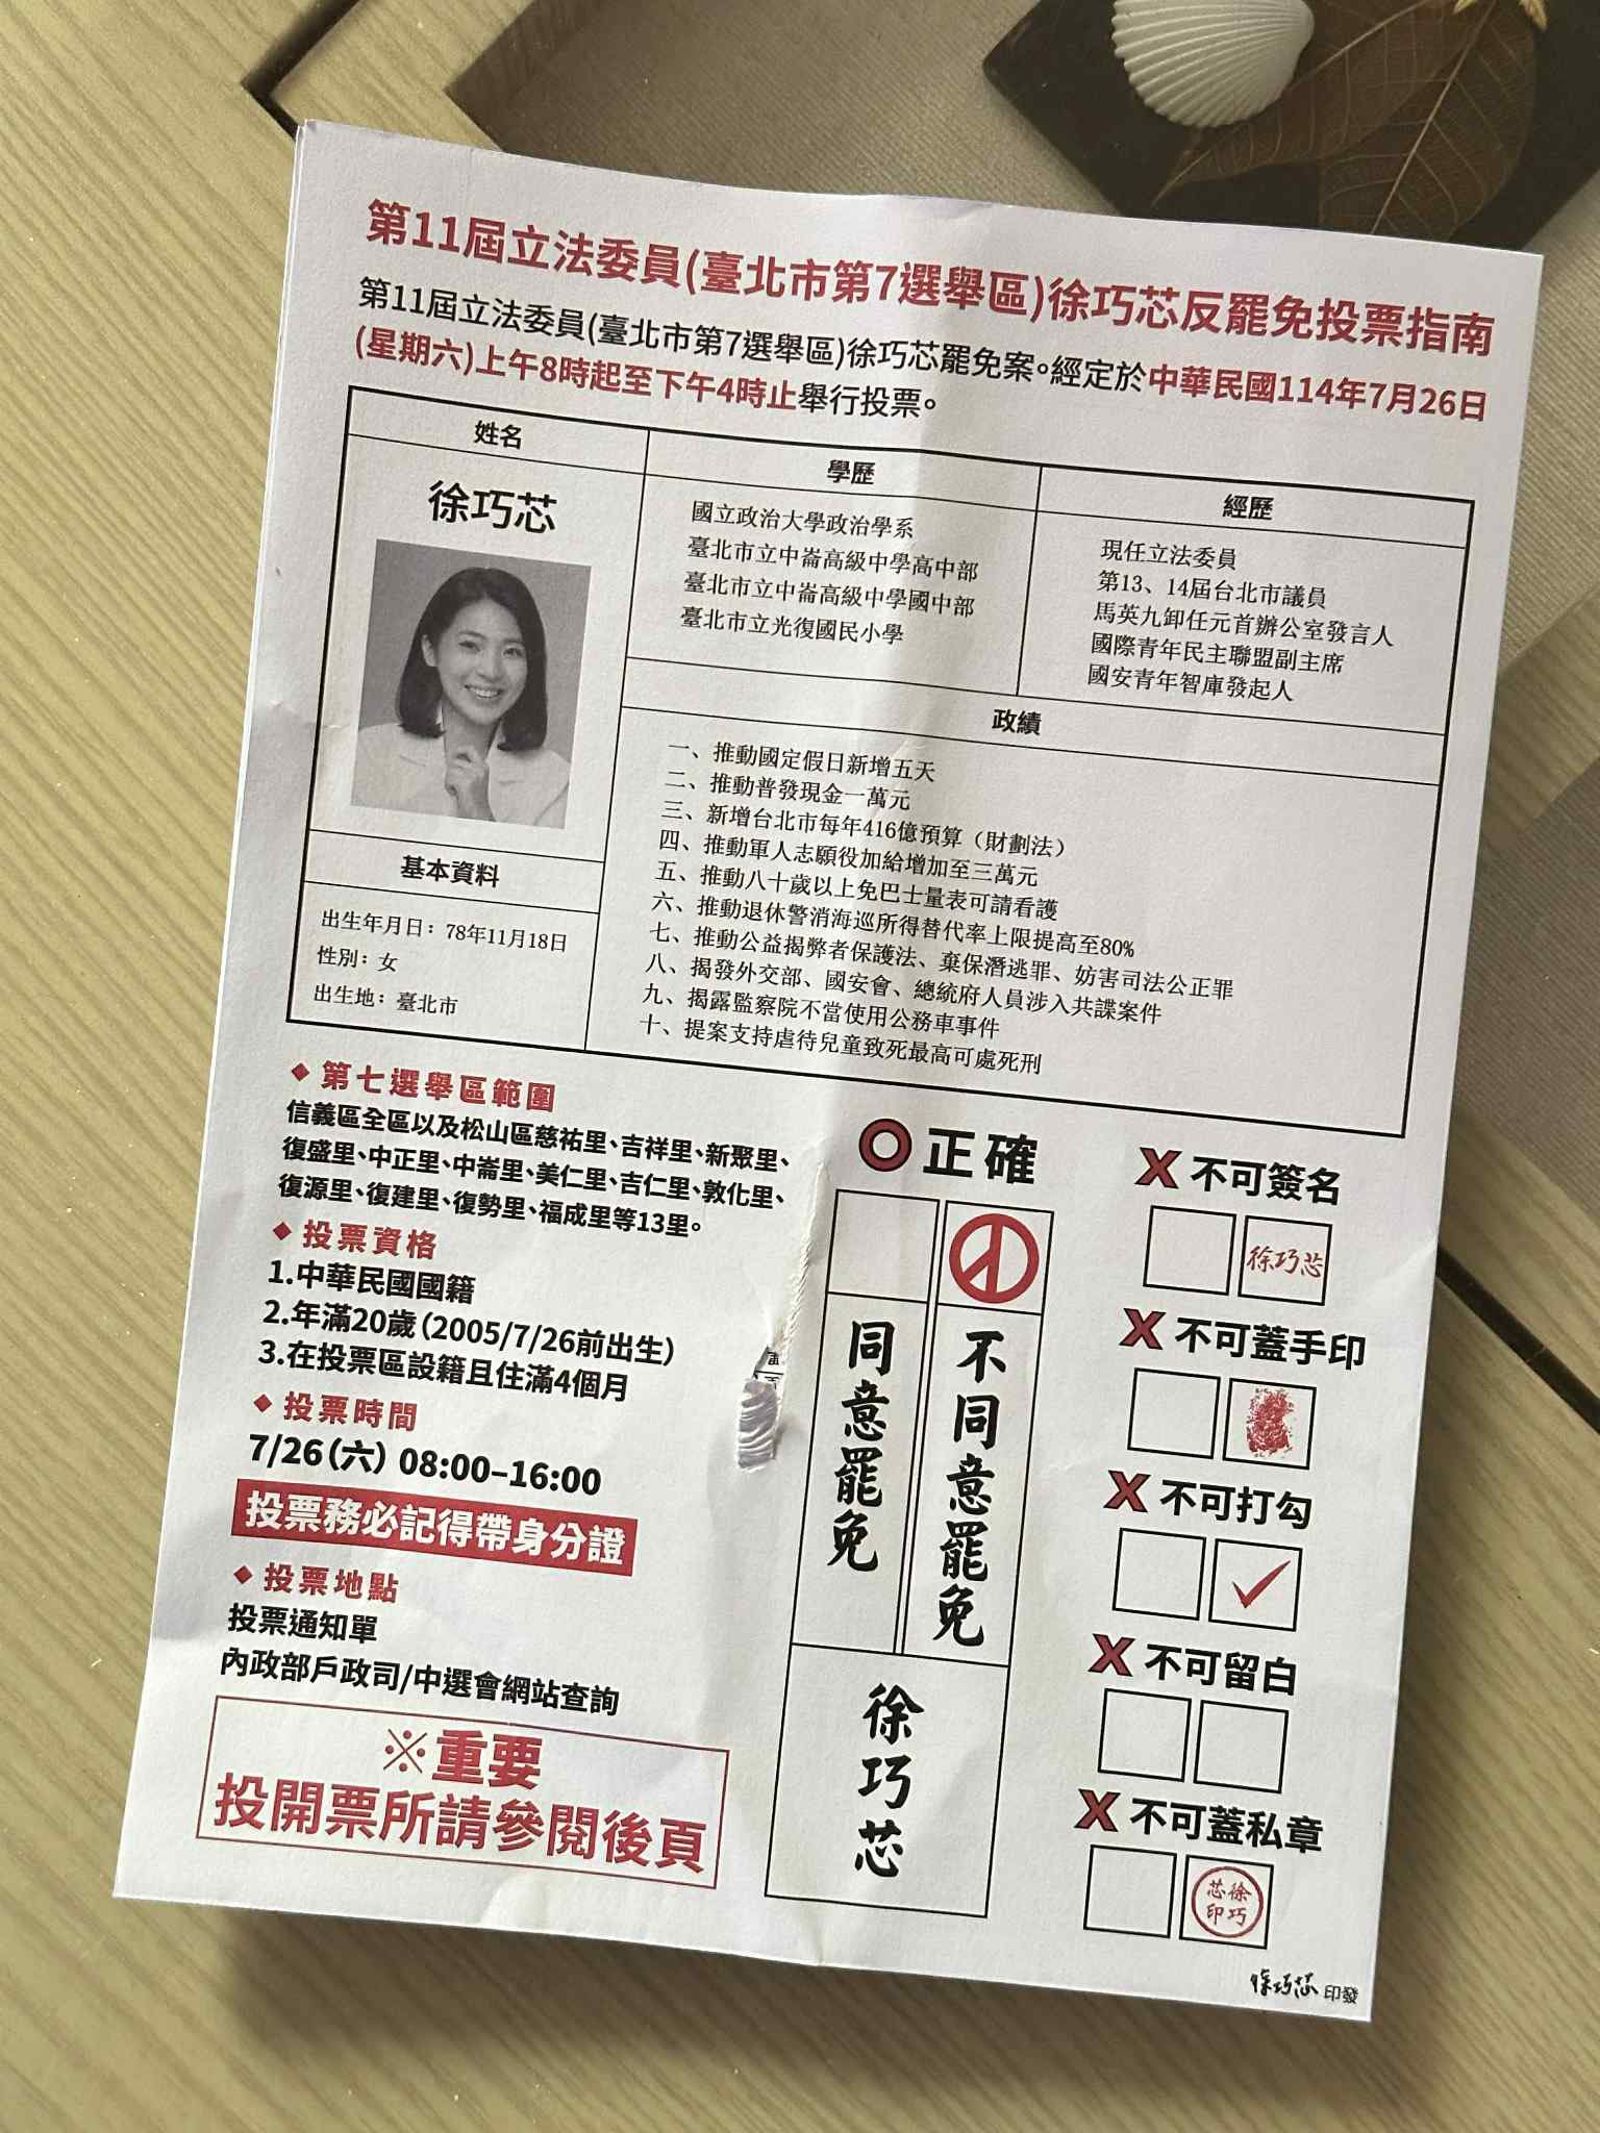 第11屆立法委員(臺北市第7選舉區)徐巧芯反罷免投票指南
第11屆立法委員(臺北市第7選舉區)徐巧芯罷免案。經定於中華民國114年7月26日
(星期六)上午8時起至下午4時止舉行投票。
姓名
徐巧芯
學歷
國立政治大學政治學系
臺北市立中崙高級中學高中部
臺北市立中崙高級中學國中部
臺北市立光復國民小學
經歷
現任立法委員
第13、14屆台北市議員
馬英九卸任元首辦公室發言人
國際青年民主聯盟副主席
國安青年智庫發起人
政績
一、推動國定假日新增五天
二、推動普發現金一萬元
三、新增台北市每年416億預算（財劃法）
四、推動軍人志願役加給增加至三萬元
五、推動八十歲以上免巴士量表可請看護
六、推動退休警消海巡所得替代率上限提高至80%
七、推動公益揭弊者保護法、棄保潛逃罪、妨害司法公正罪
八、揭發外交部、國安會、總統府人員涉入共諜案件
九、揭露監察院不當使用公務車事件
十、提案支持虐待兒童致死最高可處死刑
基本資料
出生年月日：78年11月18日
性別：女
出生地：臺北市
◆第七選舉區範圍
信義區全區以及松山區慈祐里、吉祥里、新聚里、
復盛里、中正里、中崙里、美仁里、吉仁里、敦化里、
復源里、復建里、復勢里、福成里等13里。
◆投票資格
1.中華民國國籍
2.年滿20歲（2005/7/26前出生）
3.在投票區設籍且住滿4個月
◆投票時間
7/26(六) 08:00–16:00
投票務必記得帶身分證
◆投票地點
投票通知單
內政部戶政司/中選會網站查詢
※重要
投開票所請參閱後頁
正確
同意罷免
不同意罷免
徐巧芯
X 不可簽名
徐巧芯
X 不可蓋手印
X 不可打勾
X 不可留白
X 不可蓋私章
徐巧芯印
徐巧芯 印發